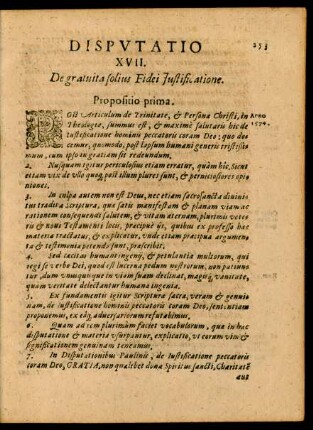 253
DISPVTATIO
XVII.
De gratuita solius Fidei Justificatione.
Propositio prima.
POst Articulum de Trinitate, & Persona Christi, in
Theologia, summus est, & maximè salutaris hic de
Iustificatione hominis peccatoris coram Deo: quo do-
cemur, quomodo, post lapsum humani generis tristissi-
mum, cum ipso in gratiam sit redeundum.
Anno
1574.
2. Nusquam igitur periculosius etiam erratur, quàm hîc. Sicut
etiam vix de vllo quoq; post illum plures sunt, & perniciosiores opi-
niones.
3. In culpa autem non est Deus, nec etiam sacrosancta divini-
tus tradita Scriptura, quæ satis manifestam & planam viam ac
rationem consequendi salutem, & vitam æternam, plurimis vete-
ris & novi Testamenti locis, præcipuè ijs, quibus ex professo hæc
materia tractatur, & explicatur, unde etiam præcipua argumen-
ta & testimonia petenda sunt, præscribit.
4. Sed cæcitas humani ingenij, & petulantia multorum, qui
regi se verbo Dei, quod est lucerna pedum nostrorum, non patiun-
tur dum unusquisque in viam suam declinat, magisq; vanitate,
quàm veritate delectantur humana ingenia.
5. Ex fundamentis igitur Scripturæ sacræ, veram & genui-
nam, de Iustificatione hominis peccatoris coram Deo, sententiam
proponemus, ex eaq; adversariorum refutabimus.
6. Quam ad rem plurimùm faciet vocabulorum, quæ in hac
disputatione & materia vsurpantur, explicatio, vt eorum vim &
significationem genuinam teneamus.
7. In Disputationibus Paulinis, de Iustificatione peccatoris
coram Deo, GRATIA, non quælibet dona Spiritus sancti, Charitatē
aut